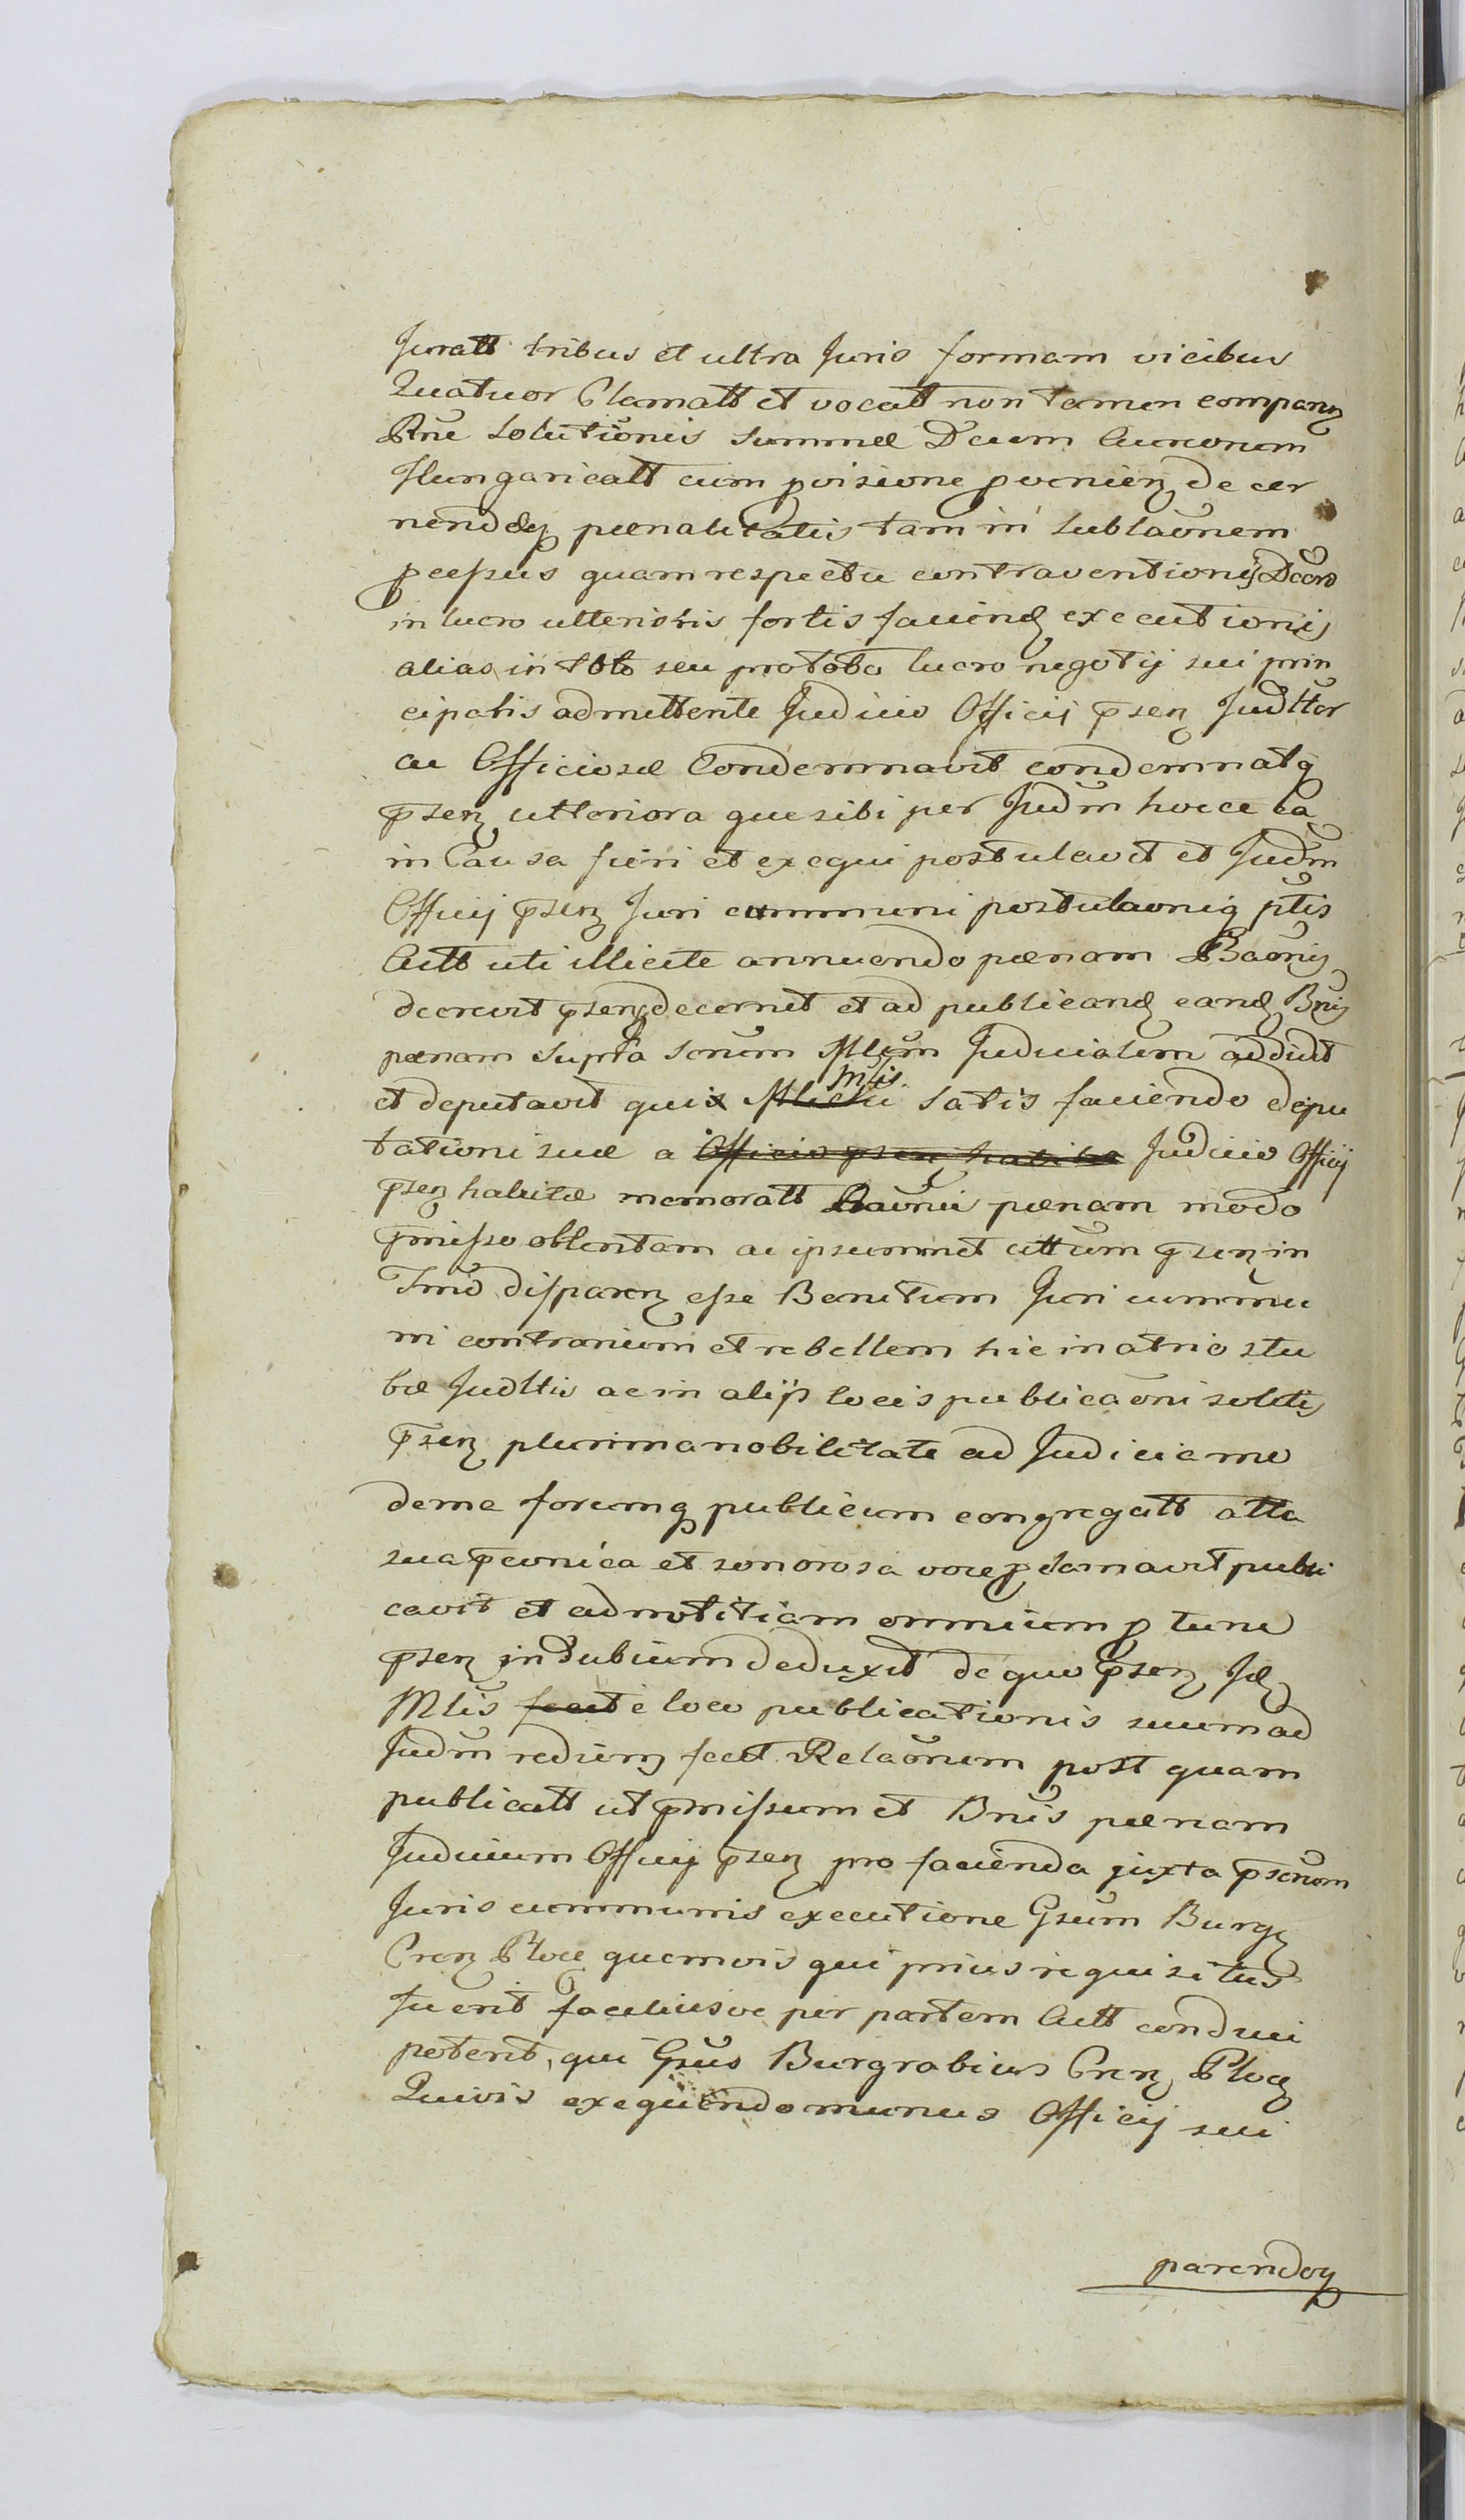 Juratt tribus et ultra Juris formam vicibus
Quatuor Clamatt et vocatt non tamen comparen
Rne solutionis summæ Dcum Aureorum
Hungaricatt cum pvisione pvenien decer
nendæq pœnalitatis tam in sublaonem
pcessus quam respectu contraventionis Dccro
in lucro ulterioris fortis faciend executionis
alias in toto seu pro toto lucro negotij sui prin
cipalis admittente Judicio Officij psen Judttor
ac Officiosæ Condemnavit condemnatq
psen ulteriora que sibi per Judm hocce ea
in Causa fieri et exequi postulavit et Judm
Officij psen Juri communi postulaoniq ptis
Actt uti illicite annuendo pœnam Baonis
decrevit psenq decernit et ad publicand eand Bnis
pœnam supra scrum Mlem Judicialem addidit
et deputavit qui Mlis satis faciendo depu
tationi suæ a Officio psen habita Judicio Officij
psen habitæ memoratt Baonis pœnam modo
pmisso obtentam ac ipsummet cittum psen in
Tmo disparen esse Banitum Juri commu
ni contrarium et rebellem hic in atrio stu
bæ Judltis ac in alijs locis publicaoni solitis
psen plurima nobilitate ad Judicia mo
derna forumq publicum congregatt atta
sua pconica et sonorosa voce pclamavit publi
cavit et ad notitiam omnium p tunc
psen indubium deduxit de quo psen Id
Mlis fecit e loco publicationis suum ad
Judm redien fecit Relaonem post quam
publicatt ut pmissum et Bnis pœnam
Judicium Officij psen pro facienda juxta psenom
Juris communis executione Gsum Burg
Cren Ploc quemvis qui prius requisitus
fuerit faciliusve per partem Actt conduci
poterit, qui Gsus Burgrabius Cren Ploc
Quivis exequendo munus Officij sui
parendoq